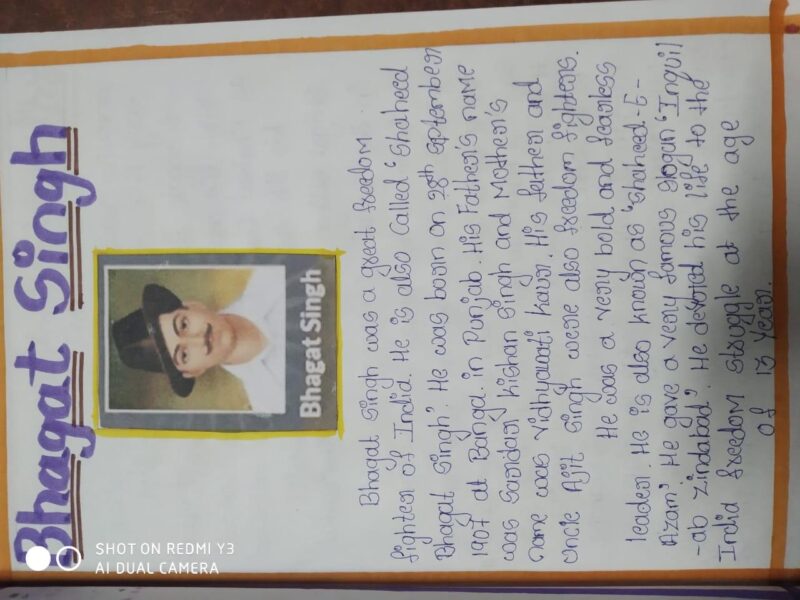 Bhagat Singh
Bhagat Singh
Bhagat singh was a great freedom
fighter of India. He is also called 'Shaheed
Bhagat singh'. He was born on 28th september
1907 at Banga in Punjab. His Father's name
was Sardar kishan singh and Mother's
name was vidhyawati kaur. His father and
uncle Ajit singh were also freedom fighters.
He was a very bold and fearless
leader. He is also known as 'Shaheed-E-
Azam' He gave a very famous slogan 'Inquil
-ab zindabad'. He devoted his life to the
India freedom struggle at the age
of 13 year.
SHOT ON REDMI Y3
AI DUAL CAMERA